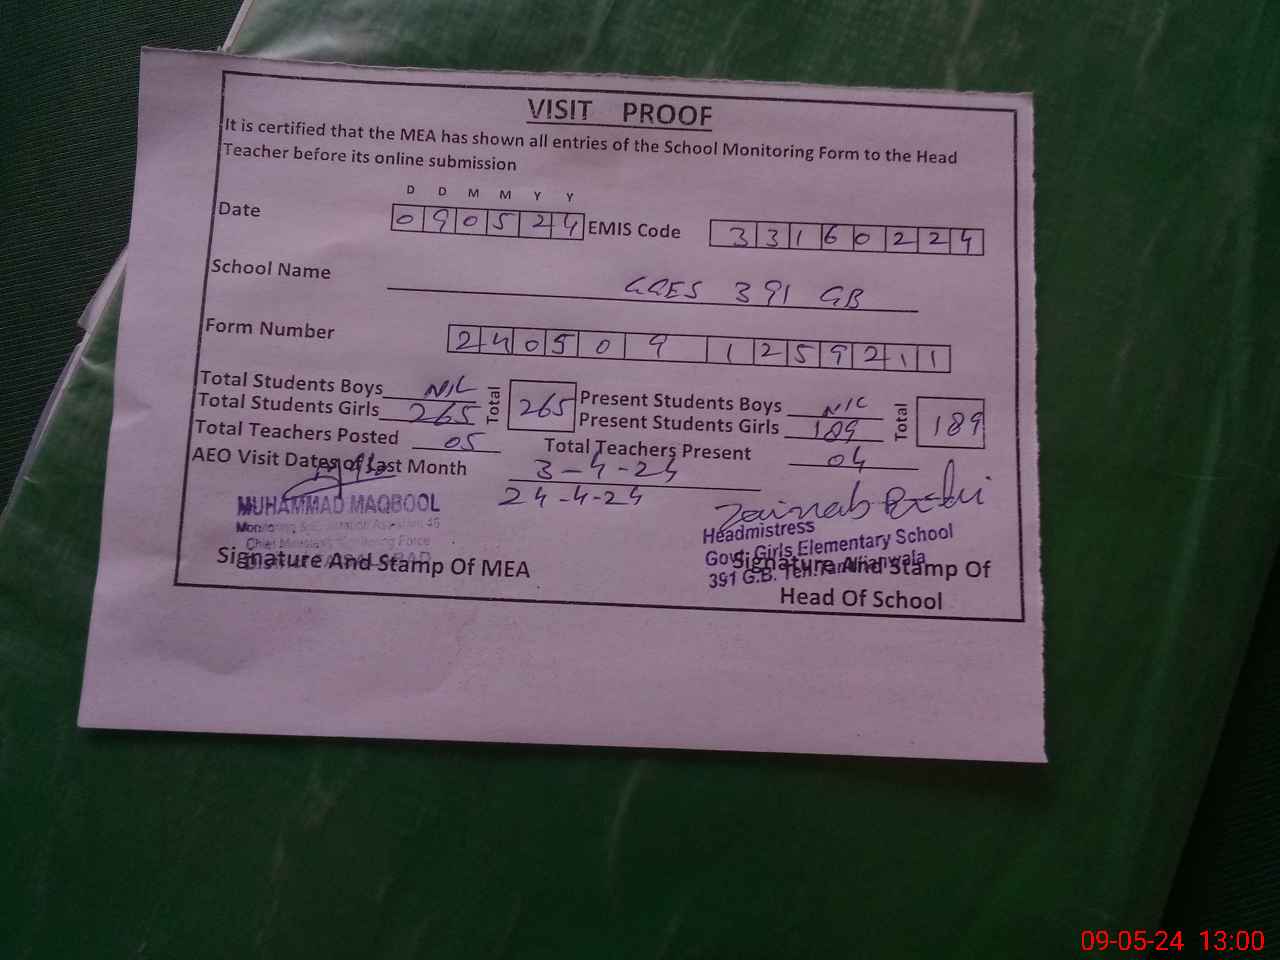 VISIT PROOF
It is certified that the MEA has shown all entries of the School Monitoring Form to the Head
Teacher before its online submission
D D M M Y Y
Date 090524 EMIS Code 33160224
School Name GGES 391 GB
Form Number 2405091259211
Total Students Boys NIL Total 265 Present Students Boys NIL Total 189
Total Students Girls 265 Present Students Girls 189
Total Teachers Posted 05 Total Teachers Present 04
AEO Visit Dates of Last Month 3-4-24
24-4-24
MUHAMMAD MAQBOOL
Monitoring
Chief Monitoring Force
Signature And Stamp Of MEA
Zainab
Headmistress
Govt. Girls Elementary School
391 G.B. Teh. Tandlianwala
Signature And Stamp Of
Head Of School
09-05-24 13:00